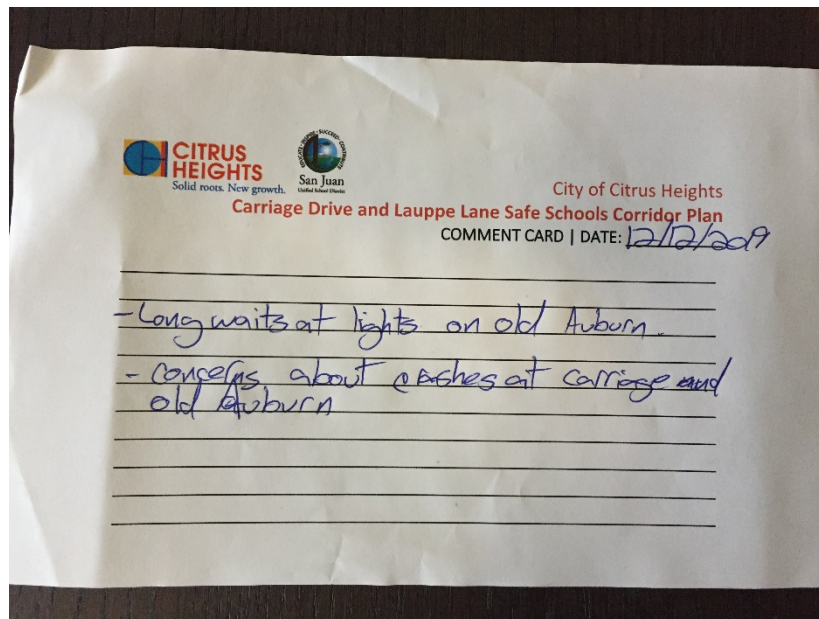 CITRUS
HEIGHTS
Solid roots. New growth.
San Juan
Unified School District
City of Citrus Heights
Carriage Drive and Lauppe Lane Safe Schools Corridor Plan
COMMENT CARD | DATE: 12/12/2019
- Long waits at lights on old Auburn.
- concerns about crashes at carriage and
old Auburn